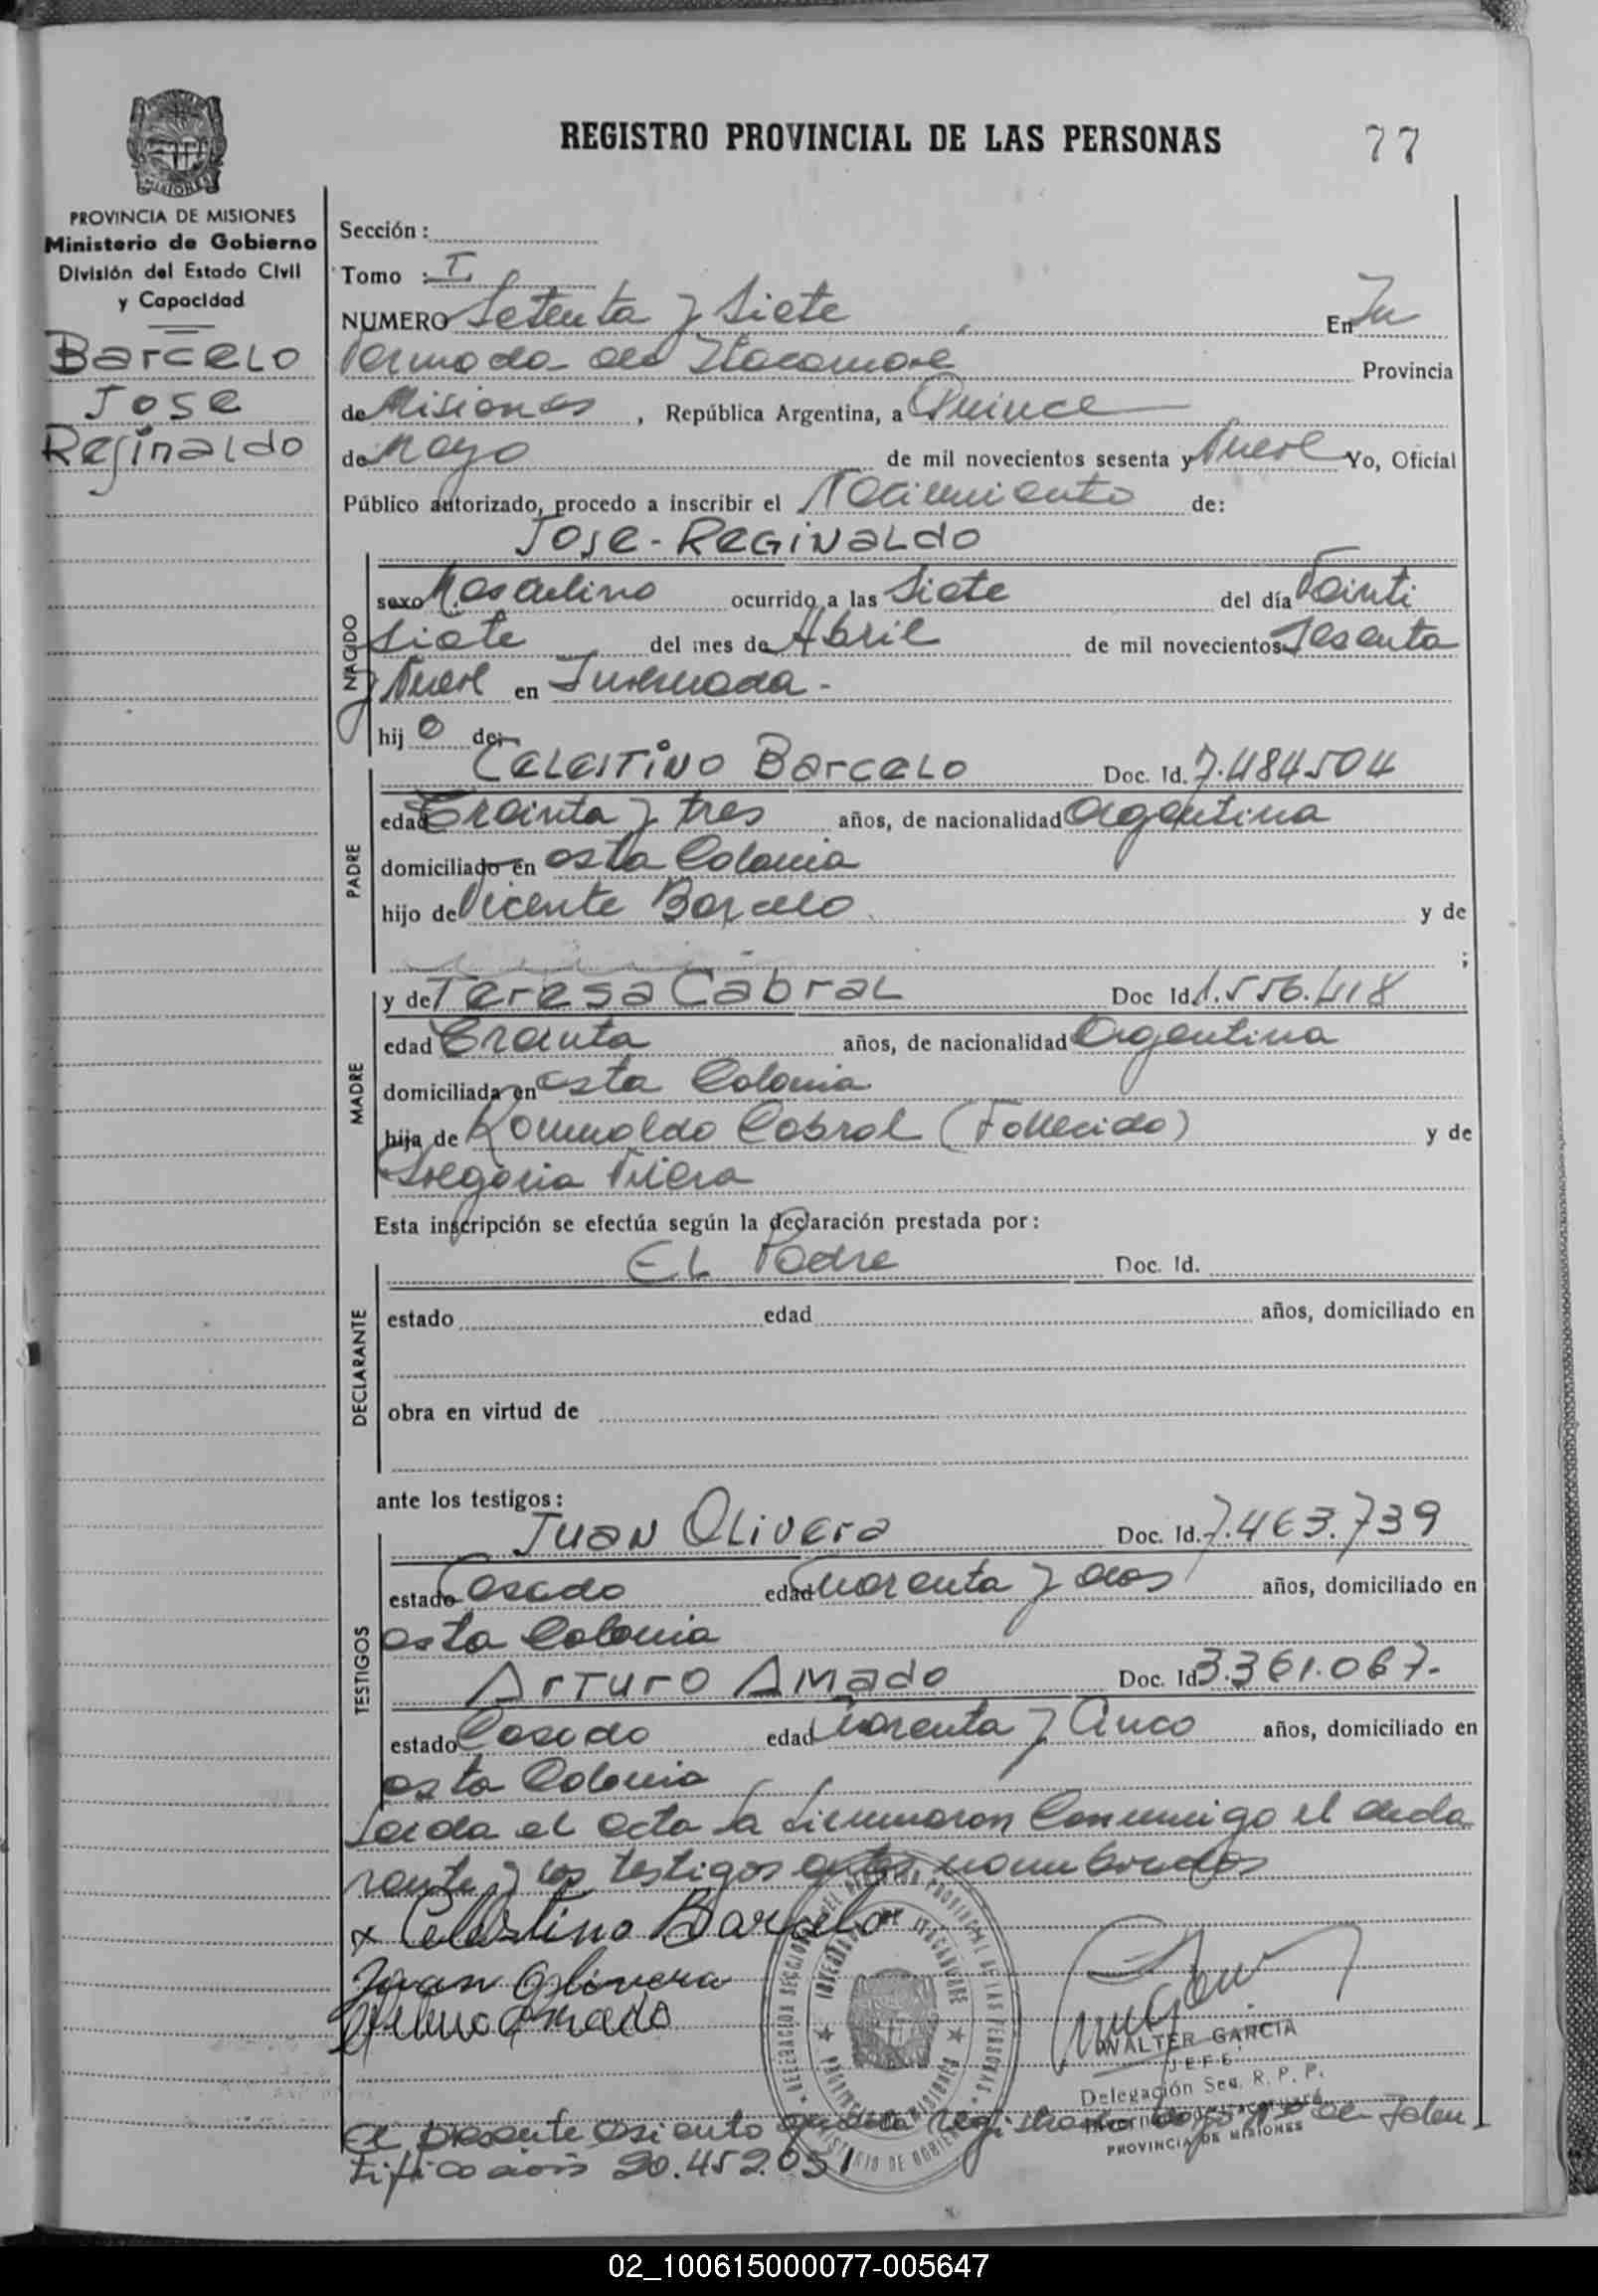 REGISTRO PROVINCIAL DE LAS PERSONAS 77
MISIONES
PROVINCIA DE MISIONES
Ministerio de Gobierno
División del Estado Civil
y Capacidad
Barcelo
Jose
Reginaldo
Sección :
Tomo : I
NUMERO Setenta y Siete En In
vernada de Itacaruare Provincia
de Misiones , República Argentina, a Quince
de Mayo de mil novecientos sesenta y Nueve Yo, Oficial
Público autorizado, procedo a inscribir el Nacimiento de:
Jose-Reginaldo
NACIDO
sexo Masculino ocurrido a las Siete del día Veinti
siete del mes de Abril de mil novecientos Sesenta
y Nueve en Invernada -
hij o de:
PADRE
Celestino Barcelo Doc. Id. 7.484504
edad Treinta y tres años, de nacionalidad Argentina
domiciliado en esta Colonia
hijo de Vicente Barcelo y de
;
MADRE
y de Teresa Cabral Doc Id 1.556.418
edad Treinta años, de nacionalidad Argentina
domiciliada en esta Colonia
hija de Romualdo Cabral (Fallecido) y de
Gregoria Viera
Esta inscripción se efectúa según la declaración prestada por :
DECLARANTE
El Padre Doc. Id.
estado edad años, domiciliado en
obra en virtud de
ante los testigos :
TESTIGOS
Juan Olivera Doc. Id. 7.463.739
estado Casado edad Cuarenta y dos años, domiciliado en
esta Colonia
Arturo Amado Doc. Id 3.361.067.
estado Casado edad Cuarenta y Cinco años, domiciliado en
esta Colonia
Leida el acta la firmaron Conmigo el decla
rante y los testigos antes nombrados
x Celestino Barcelo
Juan Olivera
Arturo Amado
WALTER GARCIA
JEFE
Delegación Sec. R. P. P.
PROVINCIA DE MISIONES
El presente asiento queda registrado bajo Nº de Iden
tificación 20.452.051
02_100615000077-005647